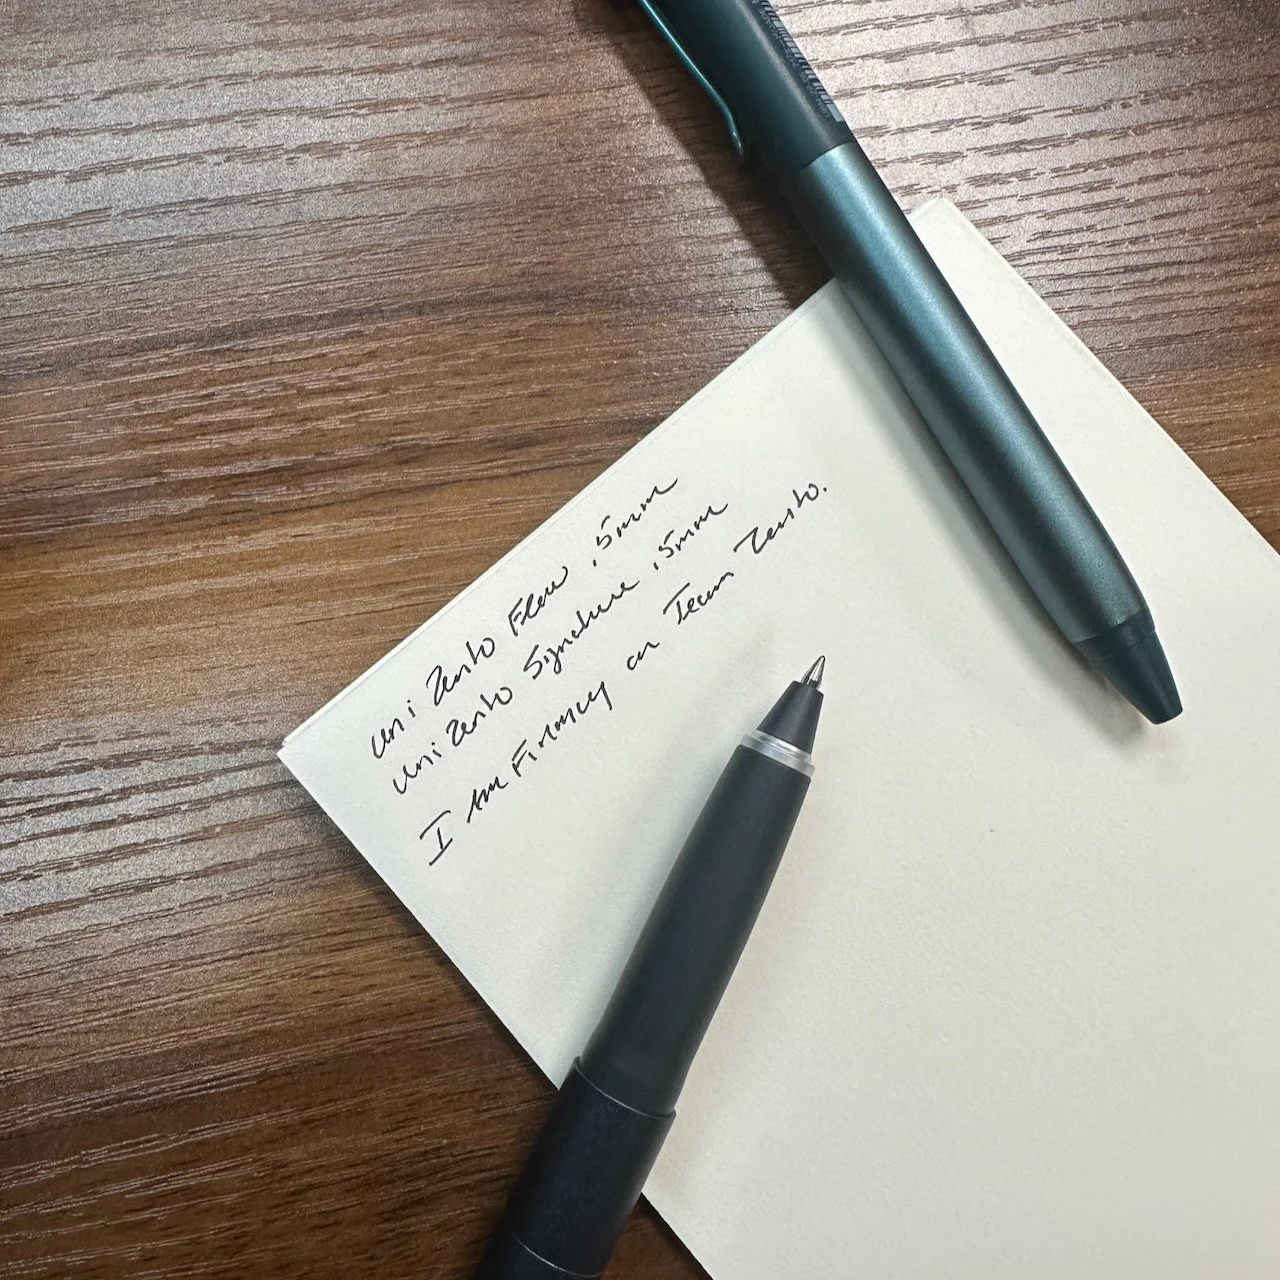 uni Zento Flow .5mm
uni Zento Signature .5mm
I am Firmly on Team Zento.